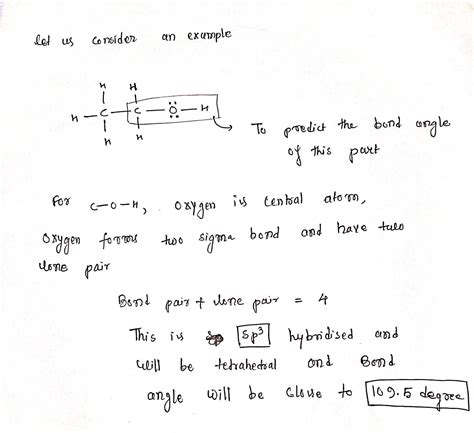 Let us consider an example
H H
H – C – C – Ö – H
H H
To predict the bond angle
of this part
For C–O–H, Oxygen is central atom,
Oxygen forms two sigma bond and have two
lone pair
Bond pair + lone pair = 4
This is sp³ hybridised and
will be tetrahedral and Bond
angle will be close to 109.5 degree